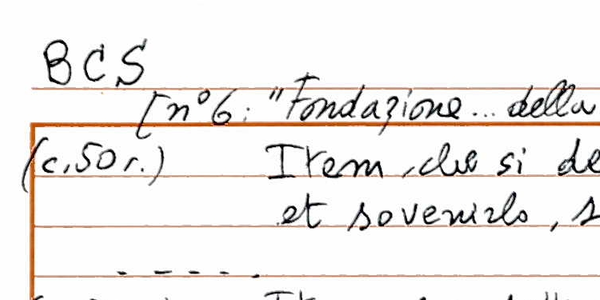 BCS
[n°6: "Fondazione... della
(c.50r.) Item, che si de
et sovenirlo, s
- - - - -